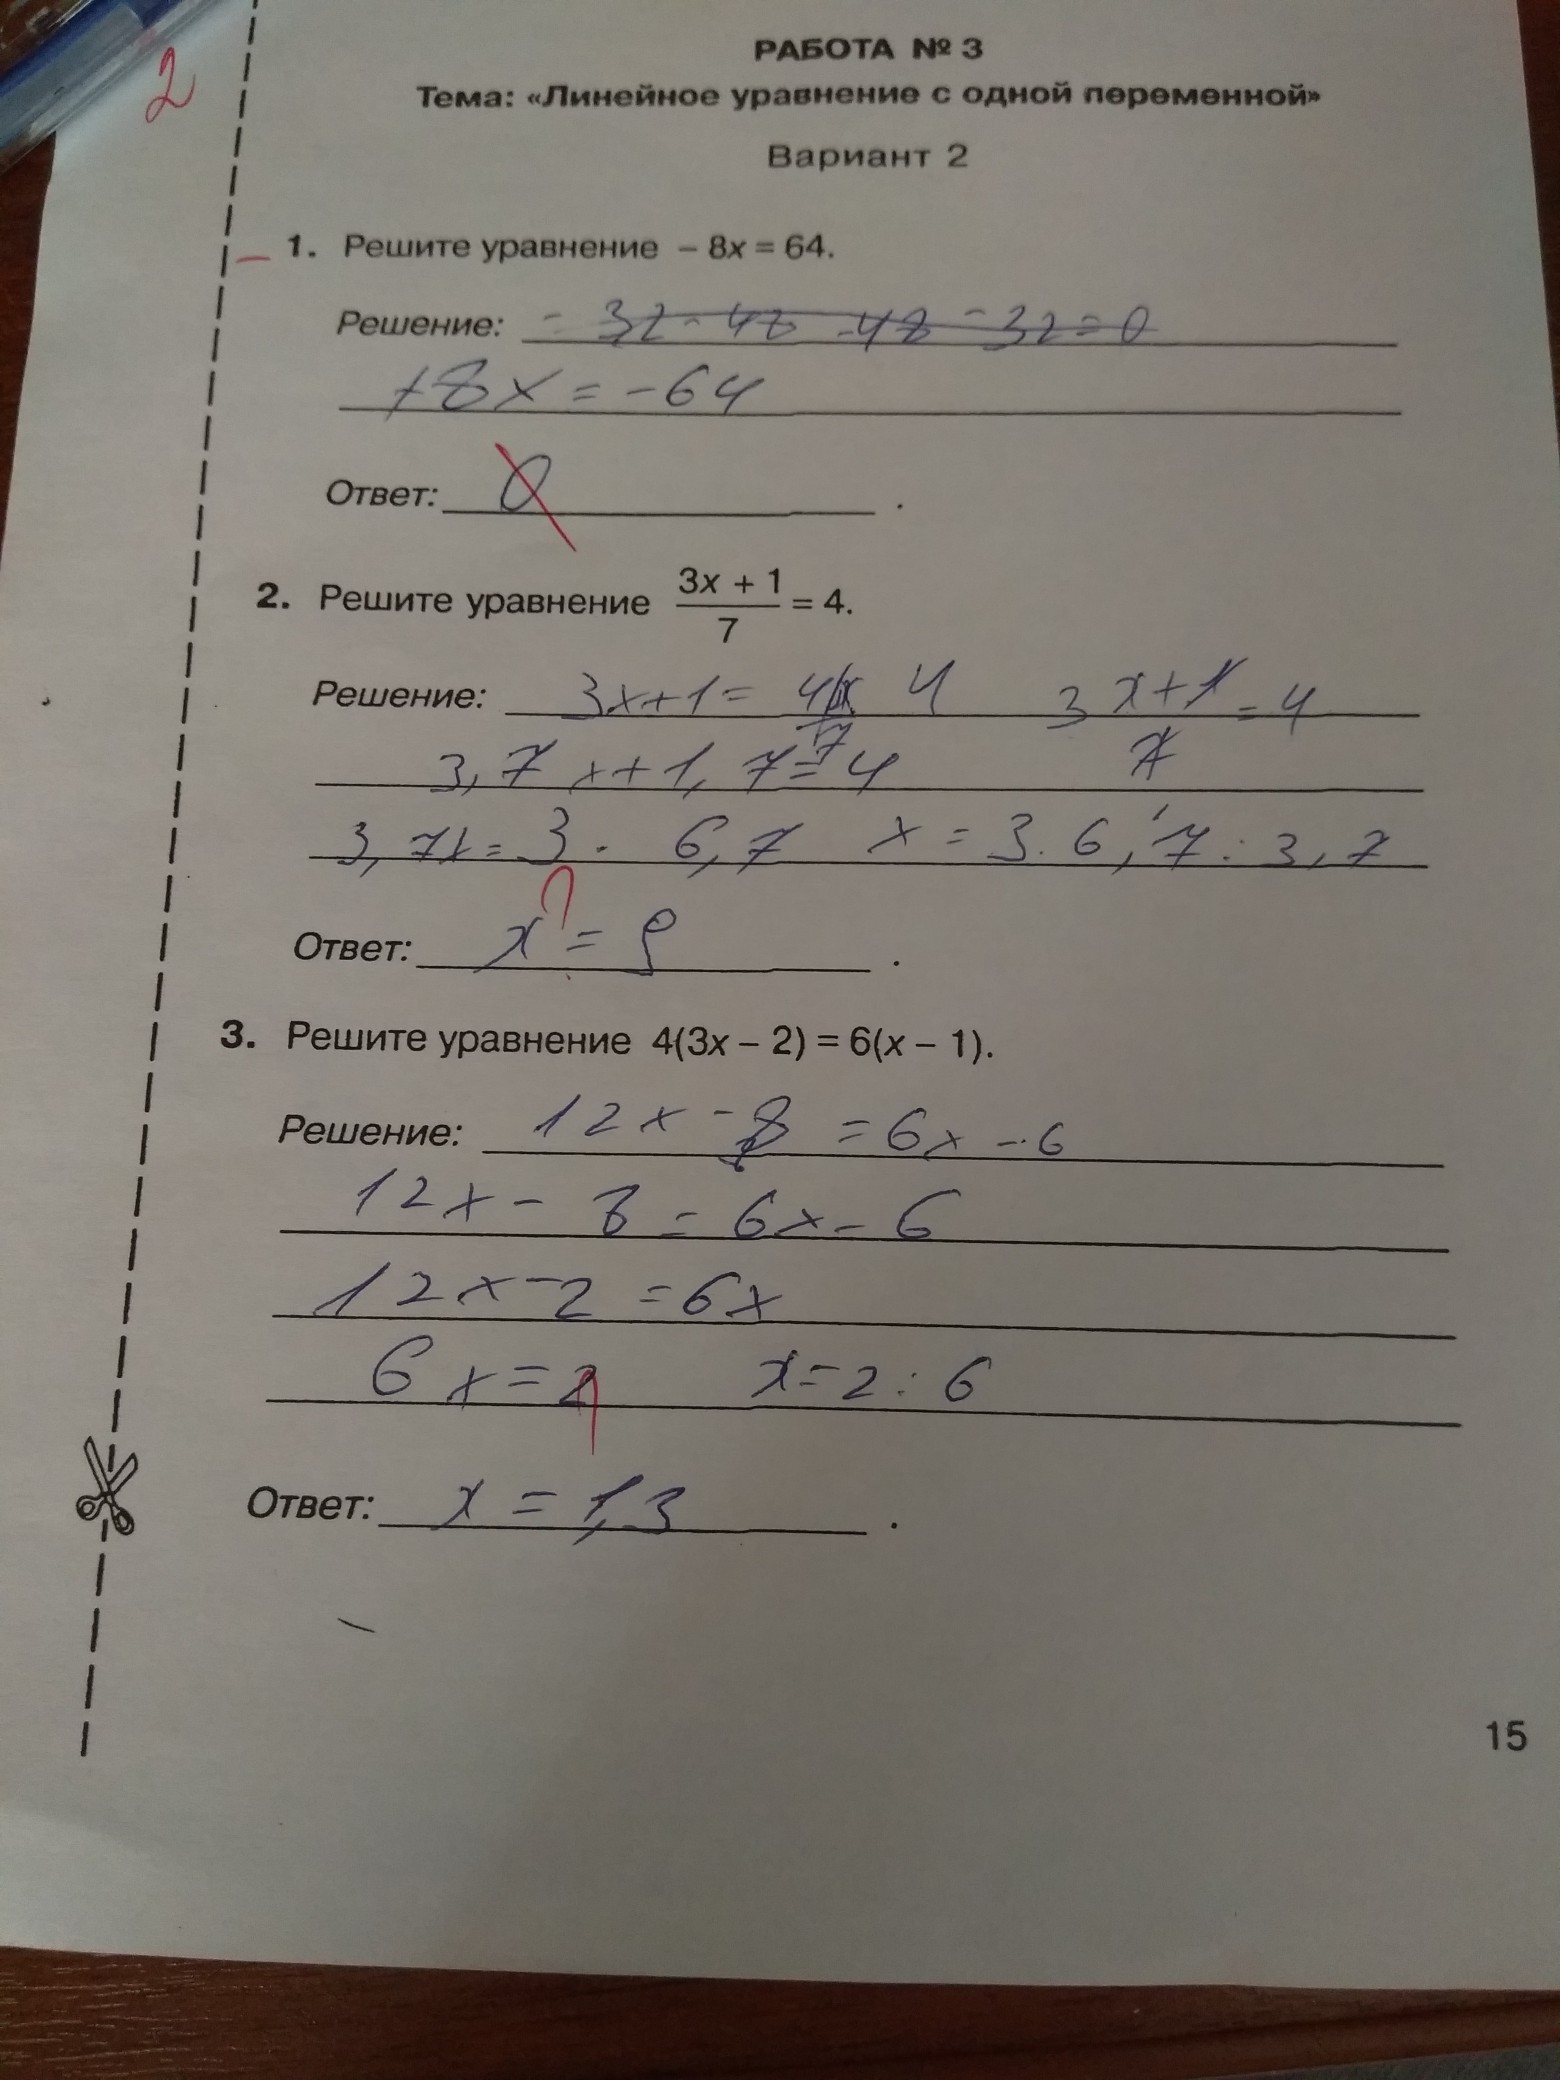 2
РАБОТА № 3
Тема: «Линейное уравнение с одной переменной»
Вариант 2
1. Решите уравнение – 8x = 64.
Решение: - 32 - 48 -48 - 32 = 0
+8x = -64
Ответ: 0 .
2. Решите уравнение (3x + 1)/7 = 4.
Решение: 3x+1 = 4 3x+1/7 = 4
3,7x+1,7=4
3,7x = 3. 6,7 x = 3.6,7:3,7
Ответ: x = 9 .
3. Решите уравнение 4(3x – 2) = 6(x – 1).
Решение: 12x - 8 = 6x - 6
12x - 8 = 6x - 6
12x - 2 = 6x
6x = 2 x = 2 : 6
Ответ: x = 1,3 .
15